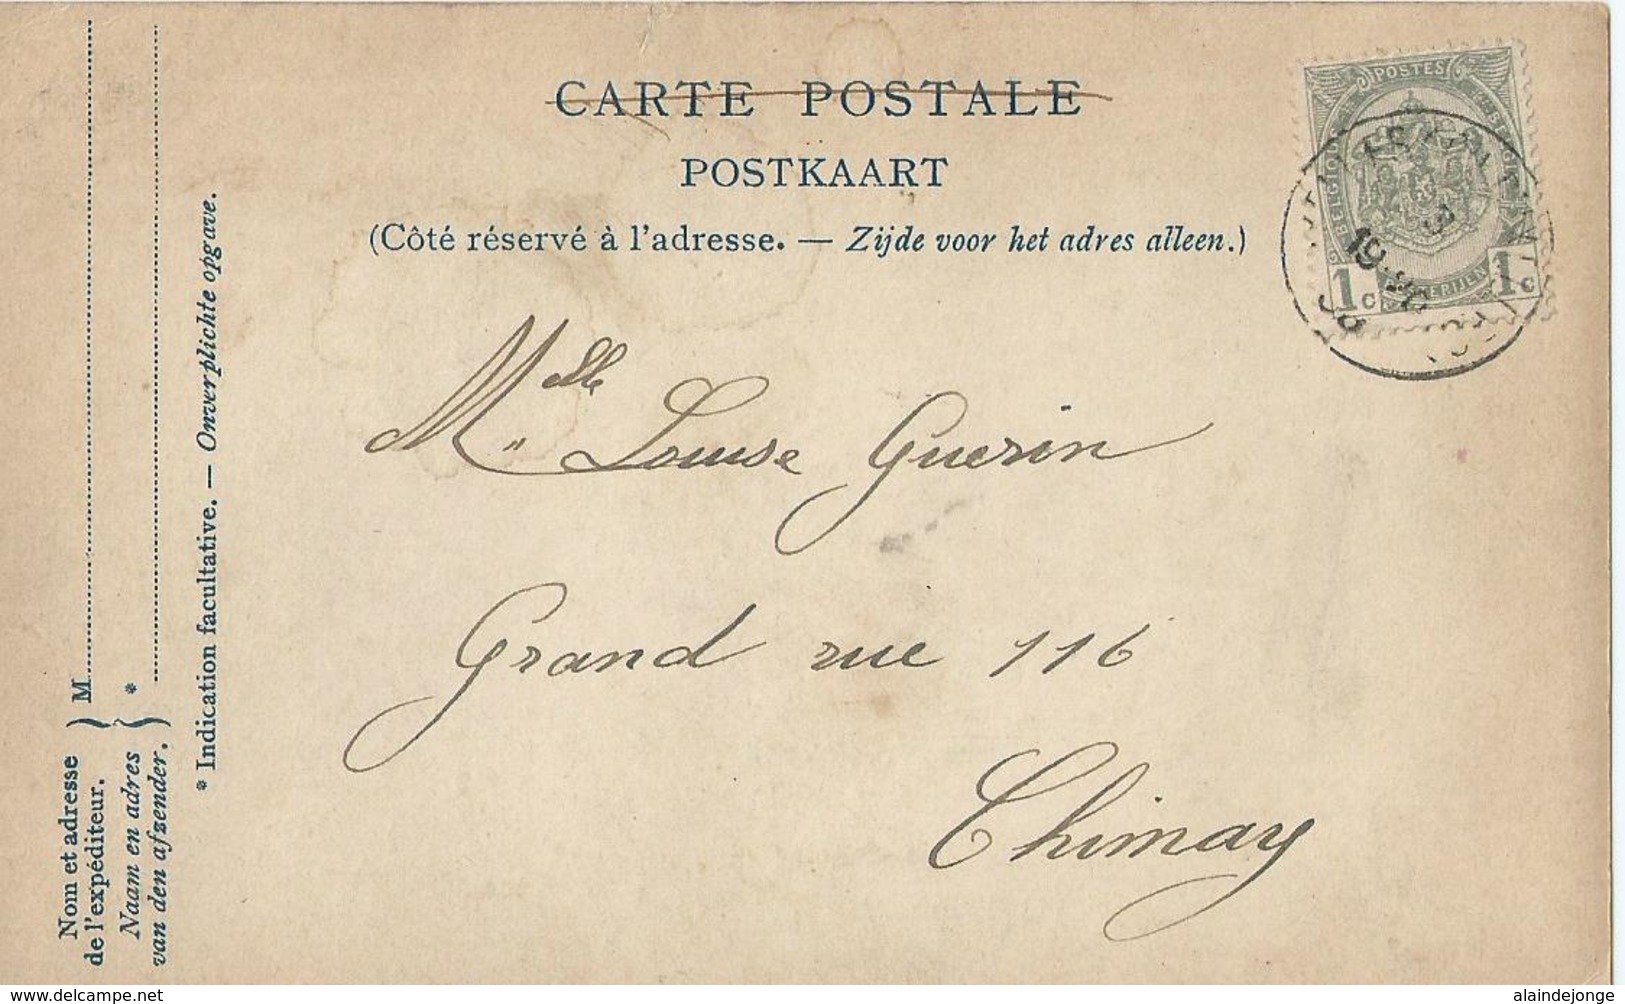 CARTE POSTALE
POSTKAART
(Côté réservé à l'adresse. — Zijde voor het adres alleen.)
POSTES
BELGIQUE
1c 1c
Mlle Louise Guerin
Grand rue 116
Chimay
Nom et adresse
de l'expéditeur.
Naam en adres
van den afzender.
M
*
* Indication facultative. — Onverplichte opgave.
delcampe.net
alaindejonge